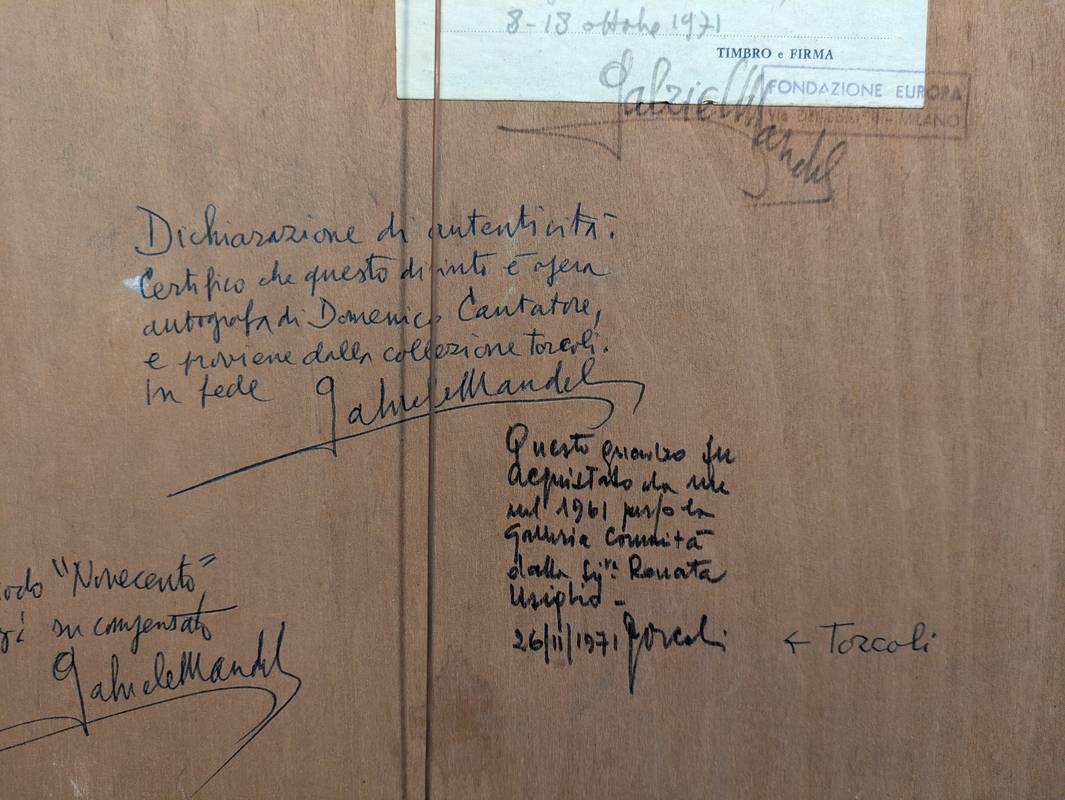 8-18 ottobre 1971
TIMBRO e FIRMA
Gabriele Mandel
FONDAZIONE EUROPA
MILANO
Dichiarazione di autenticità:
Certifico che questo dipinto è opera
autografa di Domenico Cantatore,
e proviene dalla collezione Torcoli.
In fede Gabriele Mandel
Questo quadro fu
acquistato da me
nel 1961 presso la
Galleria Comunità
dalla Sig.ra Renata
Usiglio -
26/11/1971 Torcoli ← Torcoli
"Novecento",
su compensato
Gabriele Mandel